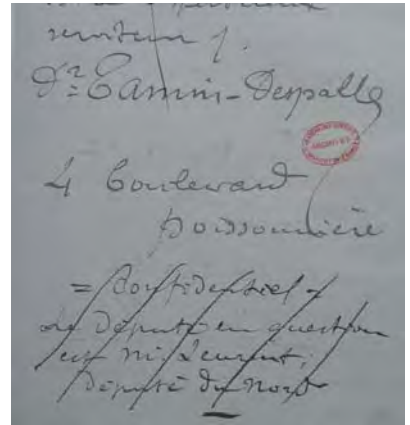 serviteur
Dr Tamin-Despalle
4 boulevard
poissonnière
= Confidentiel =
Le député en question
est Mr
Député du Nord